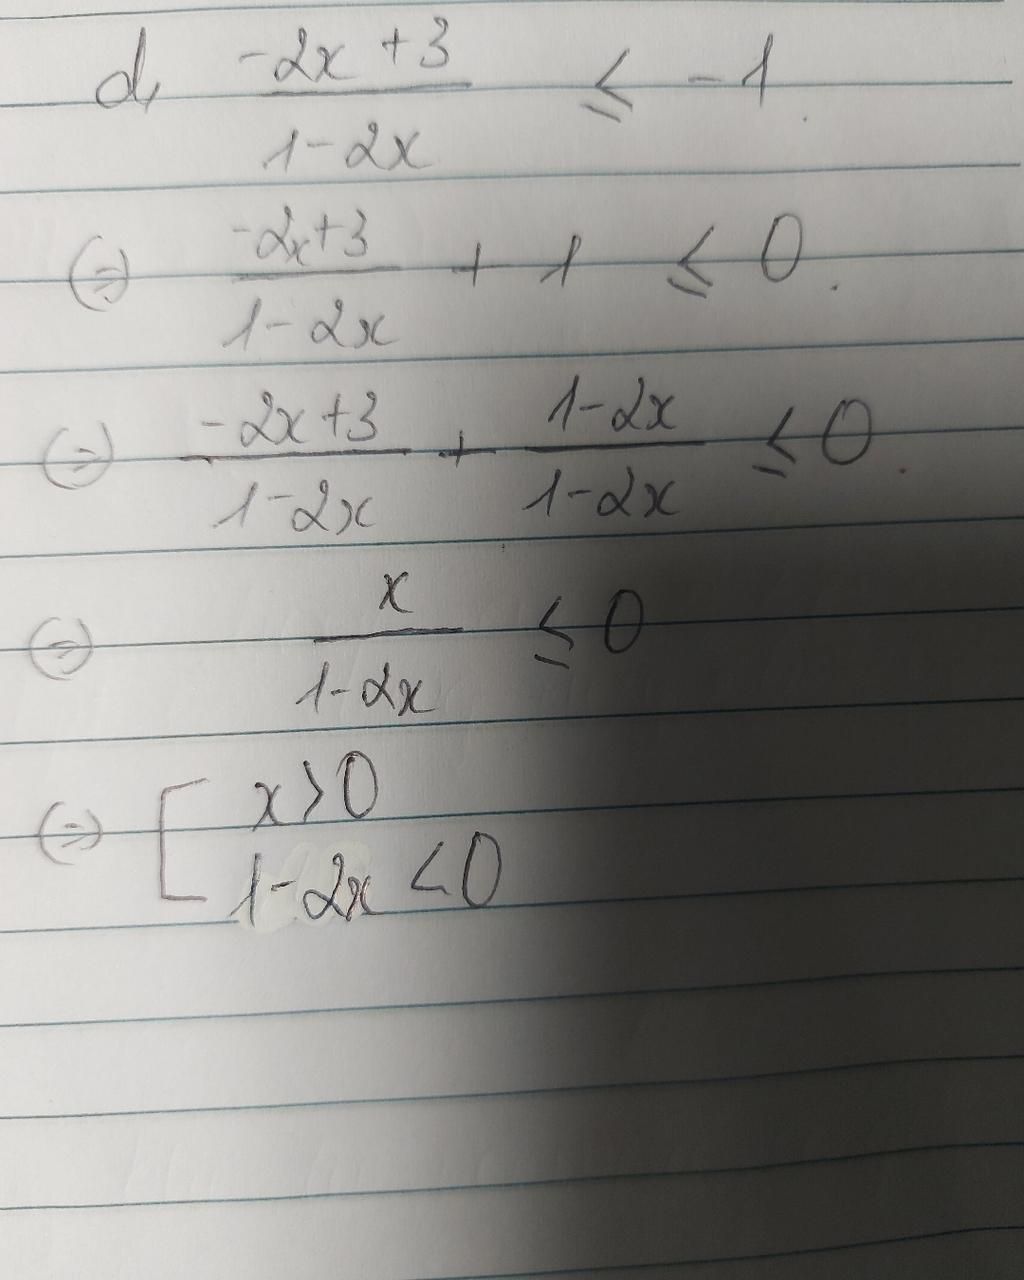 d, (-2x + 3)/(1 - 2x) ≤ -1.
(=) (-2x + 3)/(1 - 2x) + 1 ≤ 0.
(=) (-2x + 3)/(1 - 2x) + (1 - 2x)/(1 - 2x) ≤ 0.
(=) x/(1 - 2x) ≤ 0
(=) [ x > 0
1 - 2x < 0